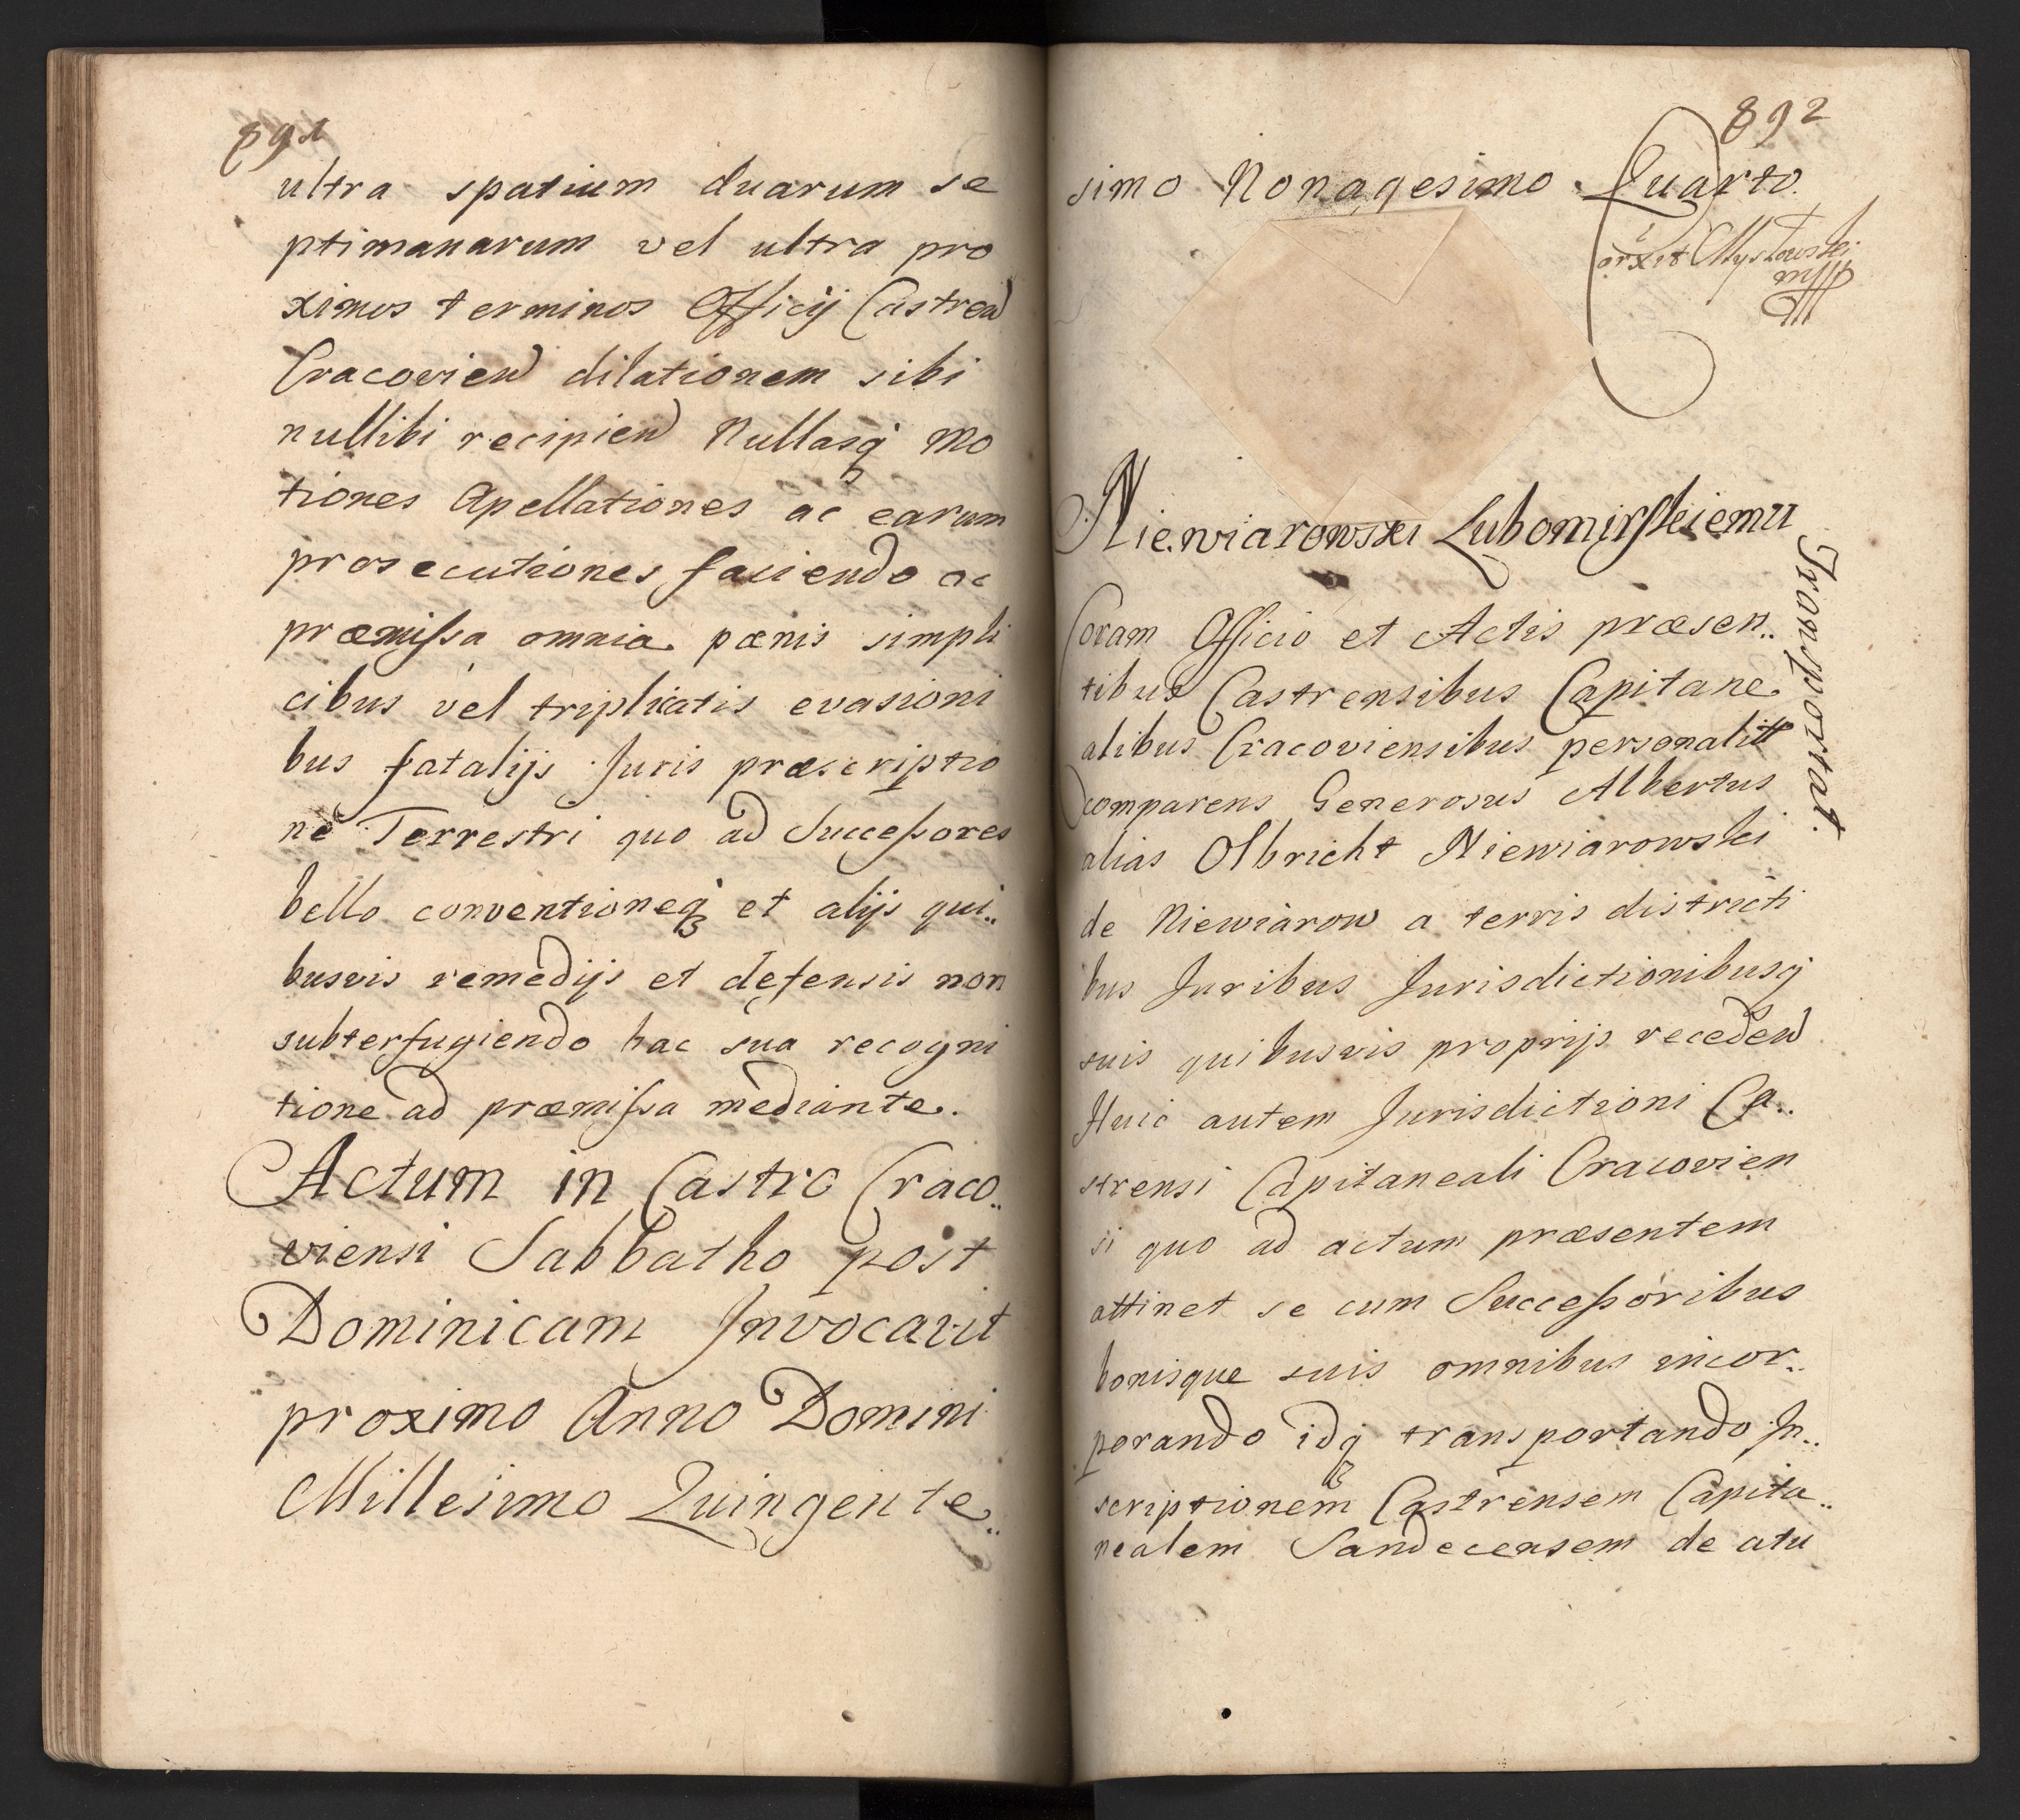 891
ultra spatium duarum se
ptimanarum vel ultra pro
ximos terminos Officij Castren
Cracovien dilationem sibi
nullibi recipien Nullasq; Mo
tiones Apellationes ac earum
prosecutiones faciendo ac
præmissa omnia pœnis simpli
cibus vel triplicatis evasioni
bus fatalijs Juris præscriptio
ne Terrestri quo ad Successores
bello conventioneq; et alijs qui..
busvis remedijs et defensis non
subterfugiendo hac sua recogni
tione ad præmissa mediante.
Actum in Castro Craco..
viensi Sabbatho post
Dominicam Invocavit
proximo Anno Domini
Millesimo Quingente..
892
simo Nonagesimo Quarto.
Mysłowski
Niewiarowski Lubomirskiemu
Transportat.
Coram Officio et Actis præsen..
tibus Castrensibus Capitane
alibus Cracoviensibus personalitt
comparens Generosus Albertus
alias Olbricht Niewiarowski
de Niewiarow a terris districti
bus Juribus Jurisdictionibusq
suis quibusvis proprijs receden
Huic autem Jurisdictioni Ca..
strensi Capitaneali Cracovien
si quo ad actum præsentem
attinet se cum Successoribus
bonisque suis omnibus incor..
porando idq; transportando In..
scriptionem Castrensem Capita..
nealem Sandecensem de actu